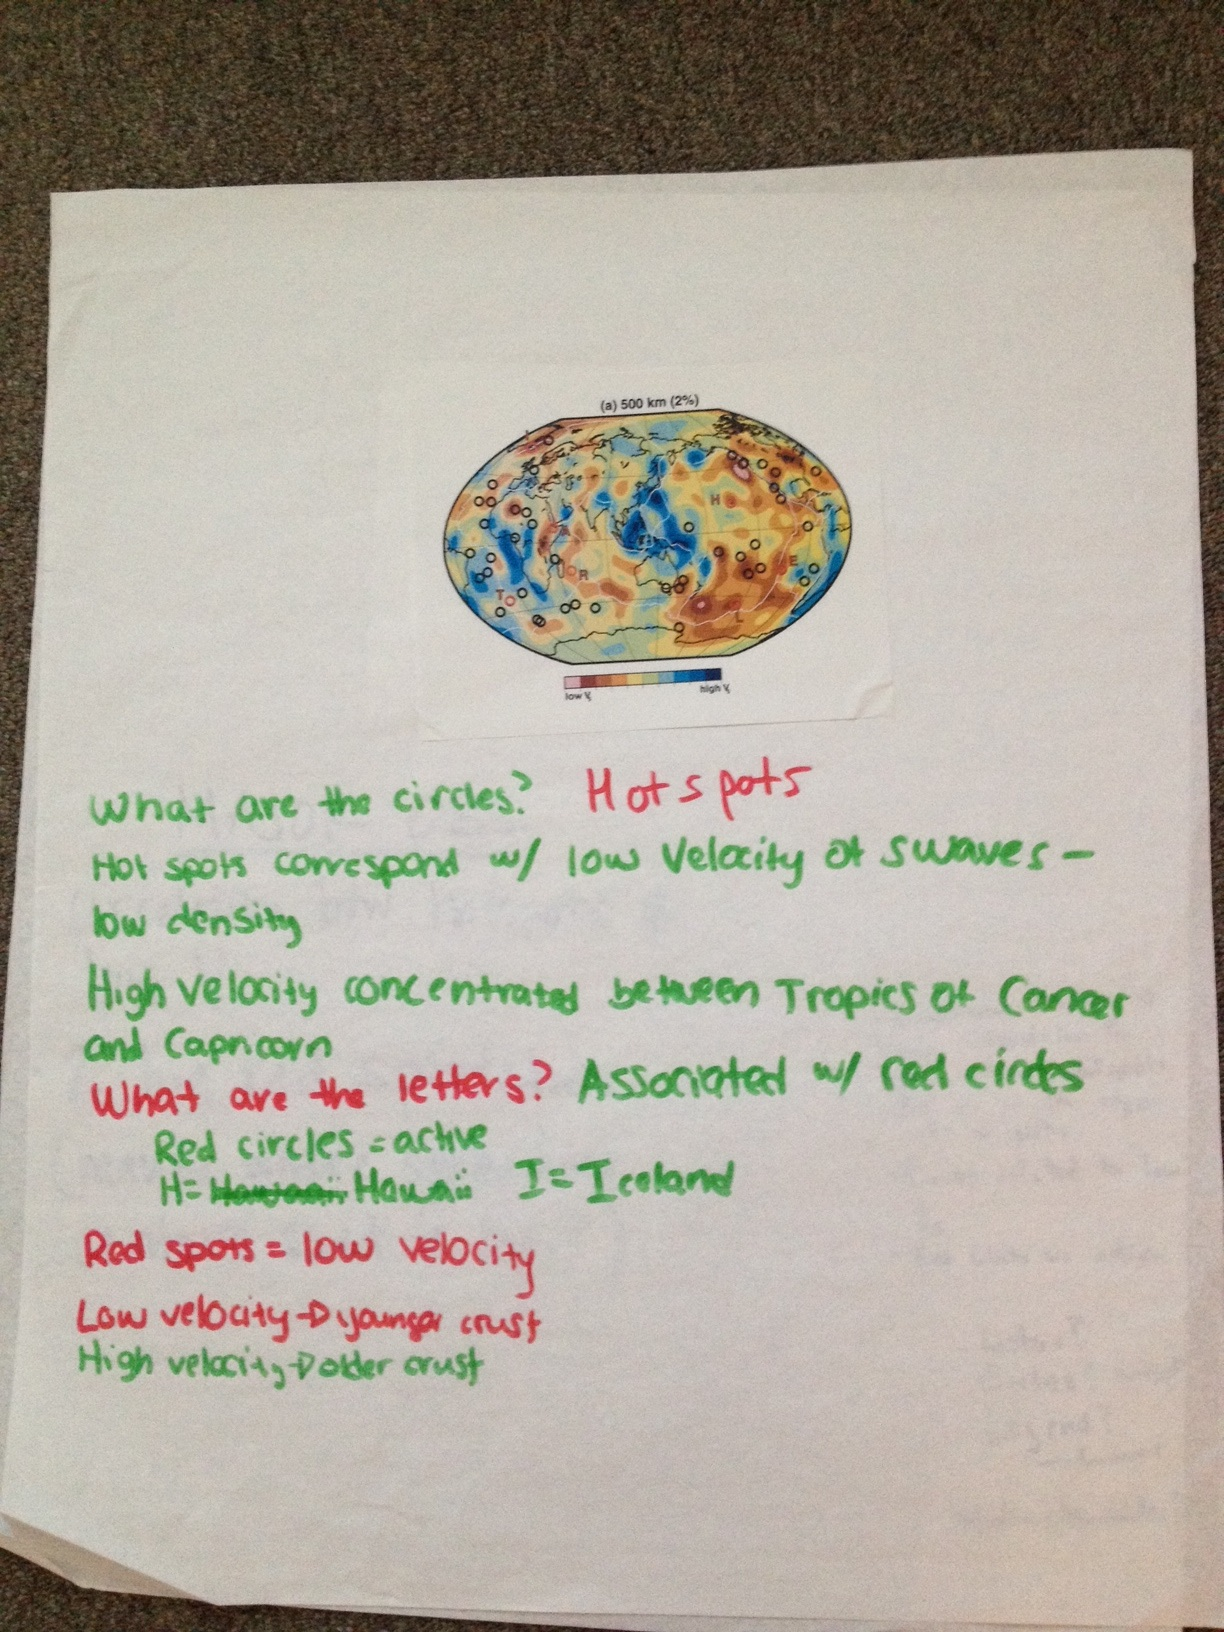 (a) 500 km (2%)
H
R
E
T
L
low Vs
high Vs
What are the circles? Hot spots
Hot spots correspond w/ low velocity of s waves -
low density
High velocity concentrated between Tropics of Cancer
and Capricorn
What are the letters? Associated w/ red circles
Red circles = active
H= Hawaii I = Iceland
Red spots = low velocity
Low velocity → younger crust
High velocity → older crust